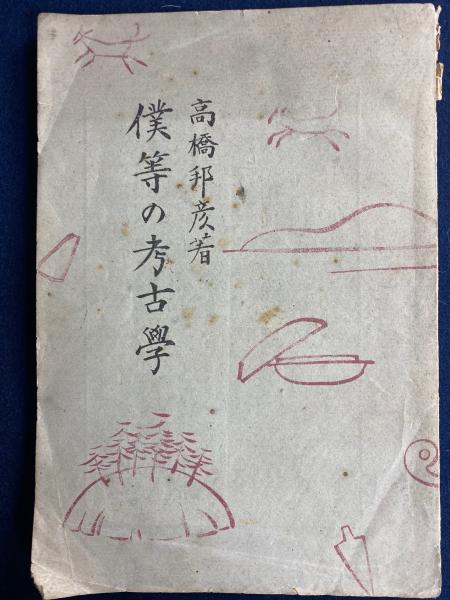 高橋邦彦著
僕等の考古學